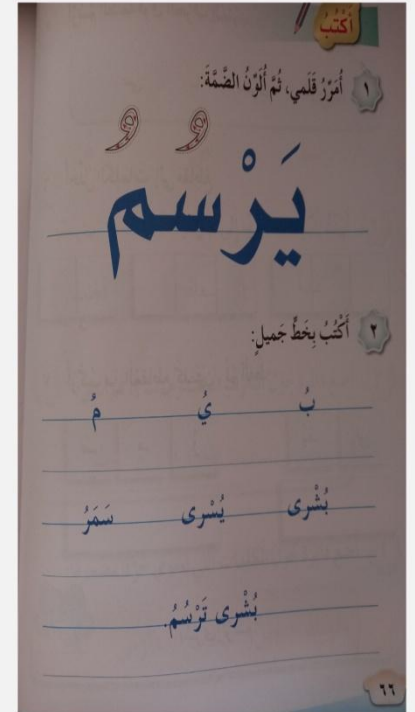 أَكْتُبُ
١ أُمَرِّرُ قَلَمي، ثُمَّ أُلَوِّنُ الضَّمَّةَ:
يَرْسُمُ
٢ أَكْتُبُ بِخَطٍّ جَميلٍ:
بُ يُ مُ
بُشْرى يُسْرى سَمَرُ
بُشْرى تَرْسُمُ.
٦٦